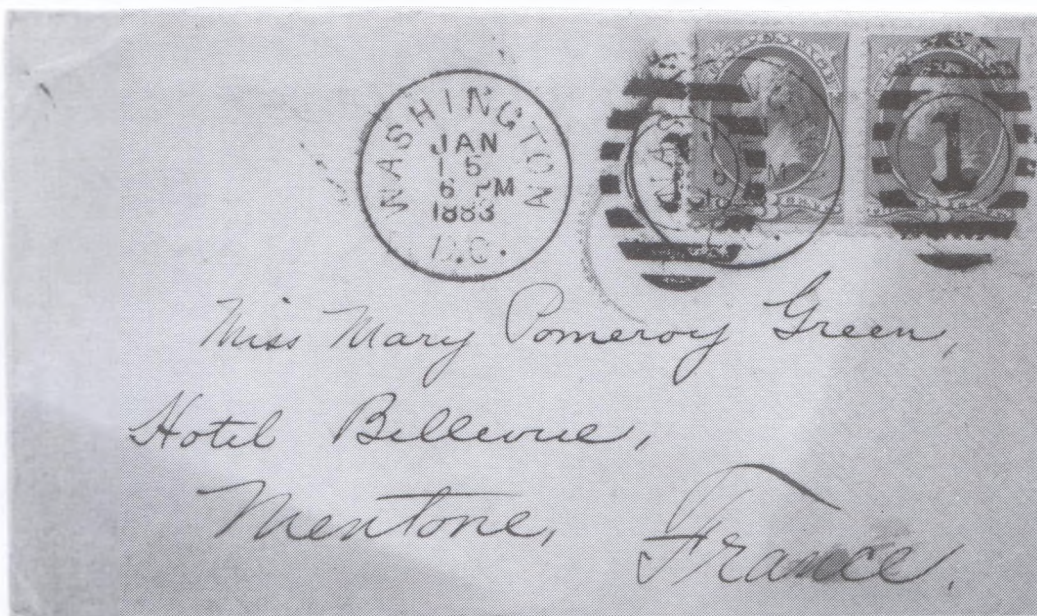 WASHINGTON
JAN
15
6 PM
1883
D.C.
1
1
Miss Mary Pomeroy Green,
Hotel Bellevue,
Mentone, France.